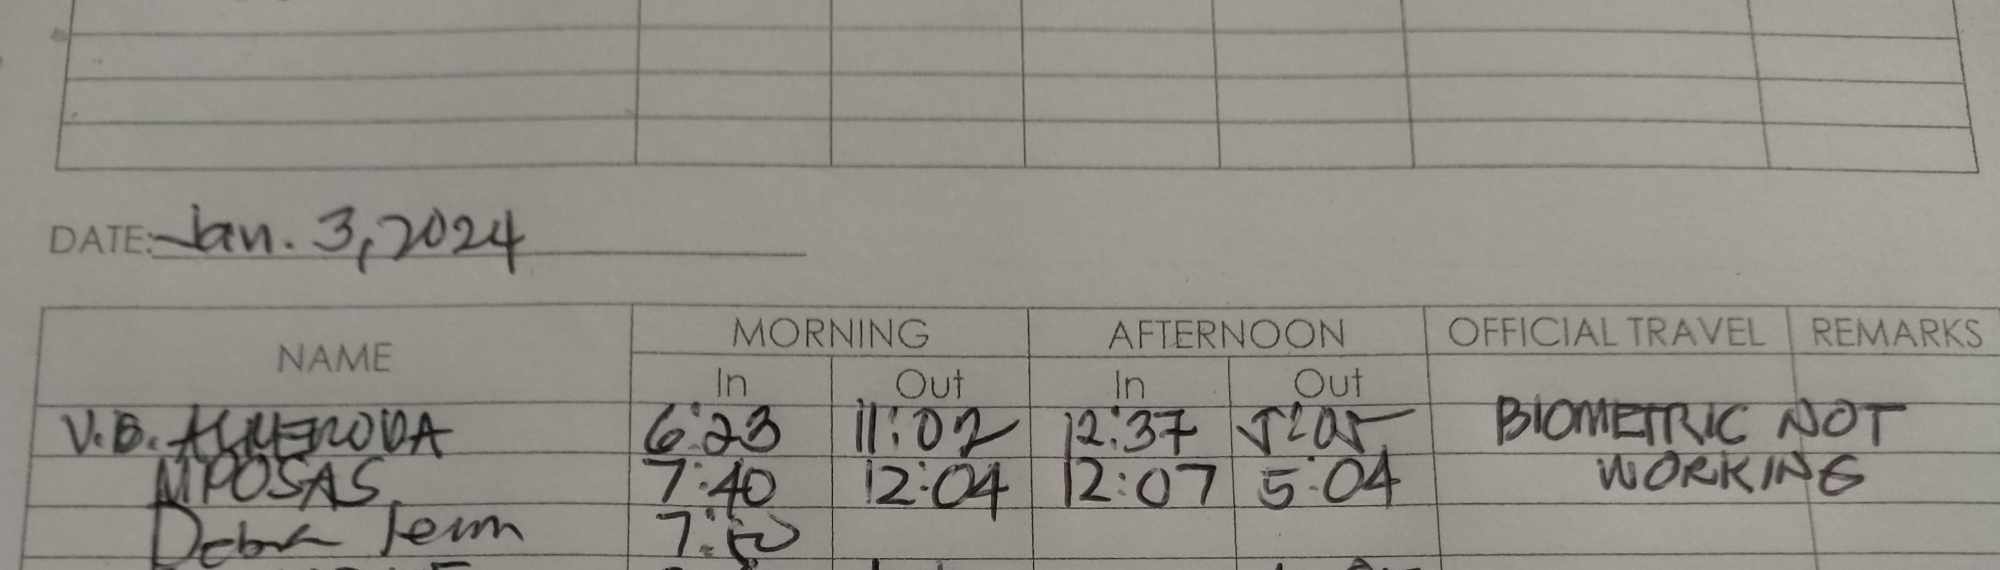 DATE: Jan. 3, 2024
NAME MORNING AFTERNOON OFFICIAL TRAVEL REMARKS
In Out In Out
V.B. ALMENODA 6:23 11:02 12:37 5:05 BIOMETRIC NOT
MPOSAS 7:40 12:04 12:07 5:04 WORKING
7:50